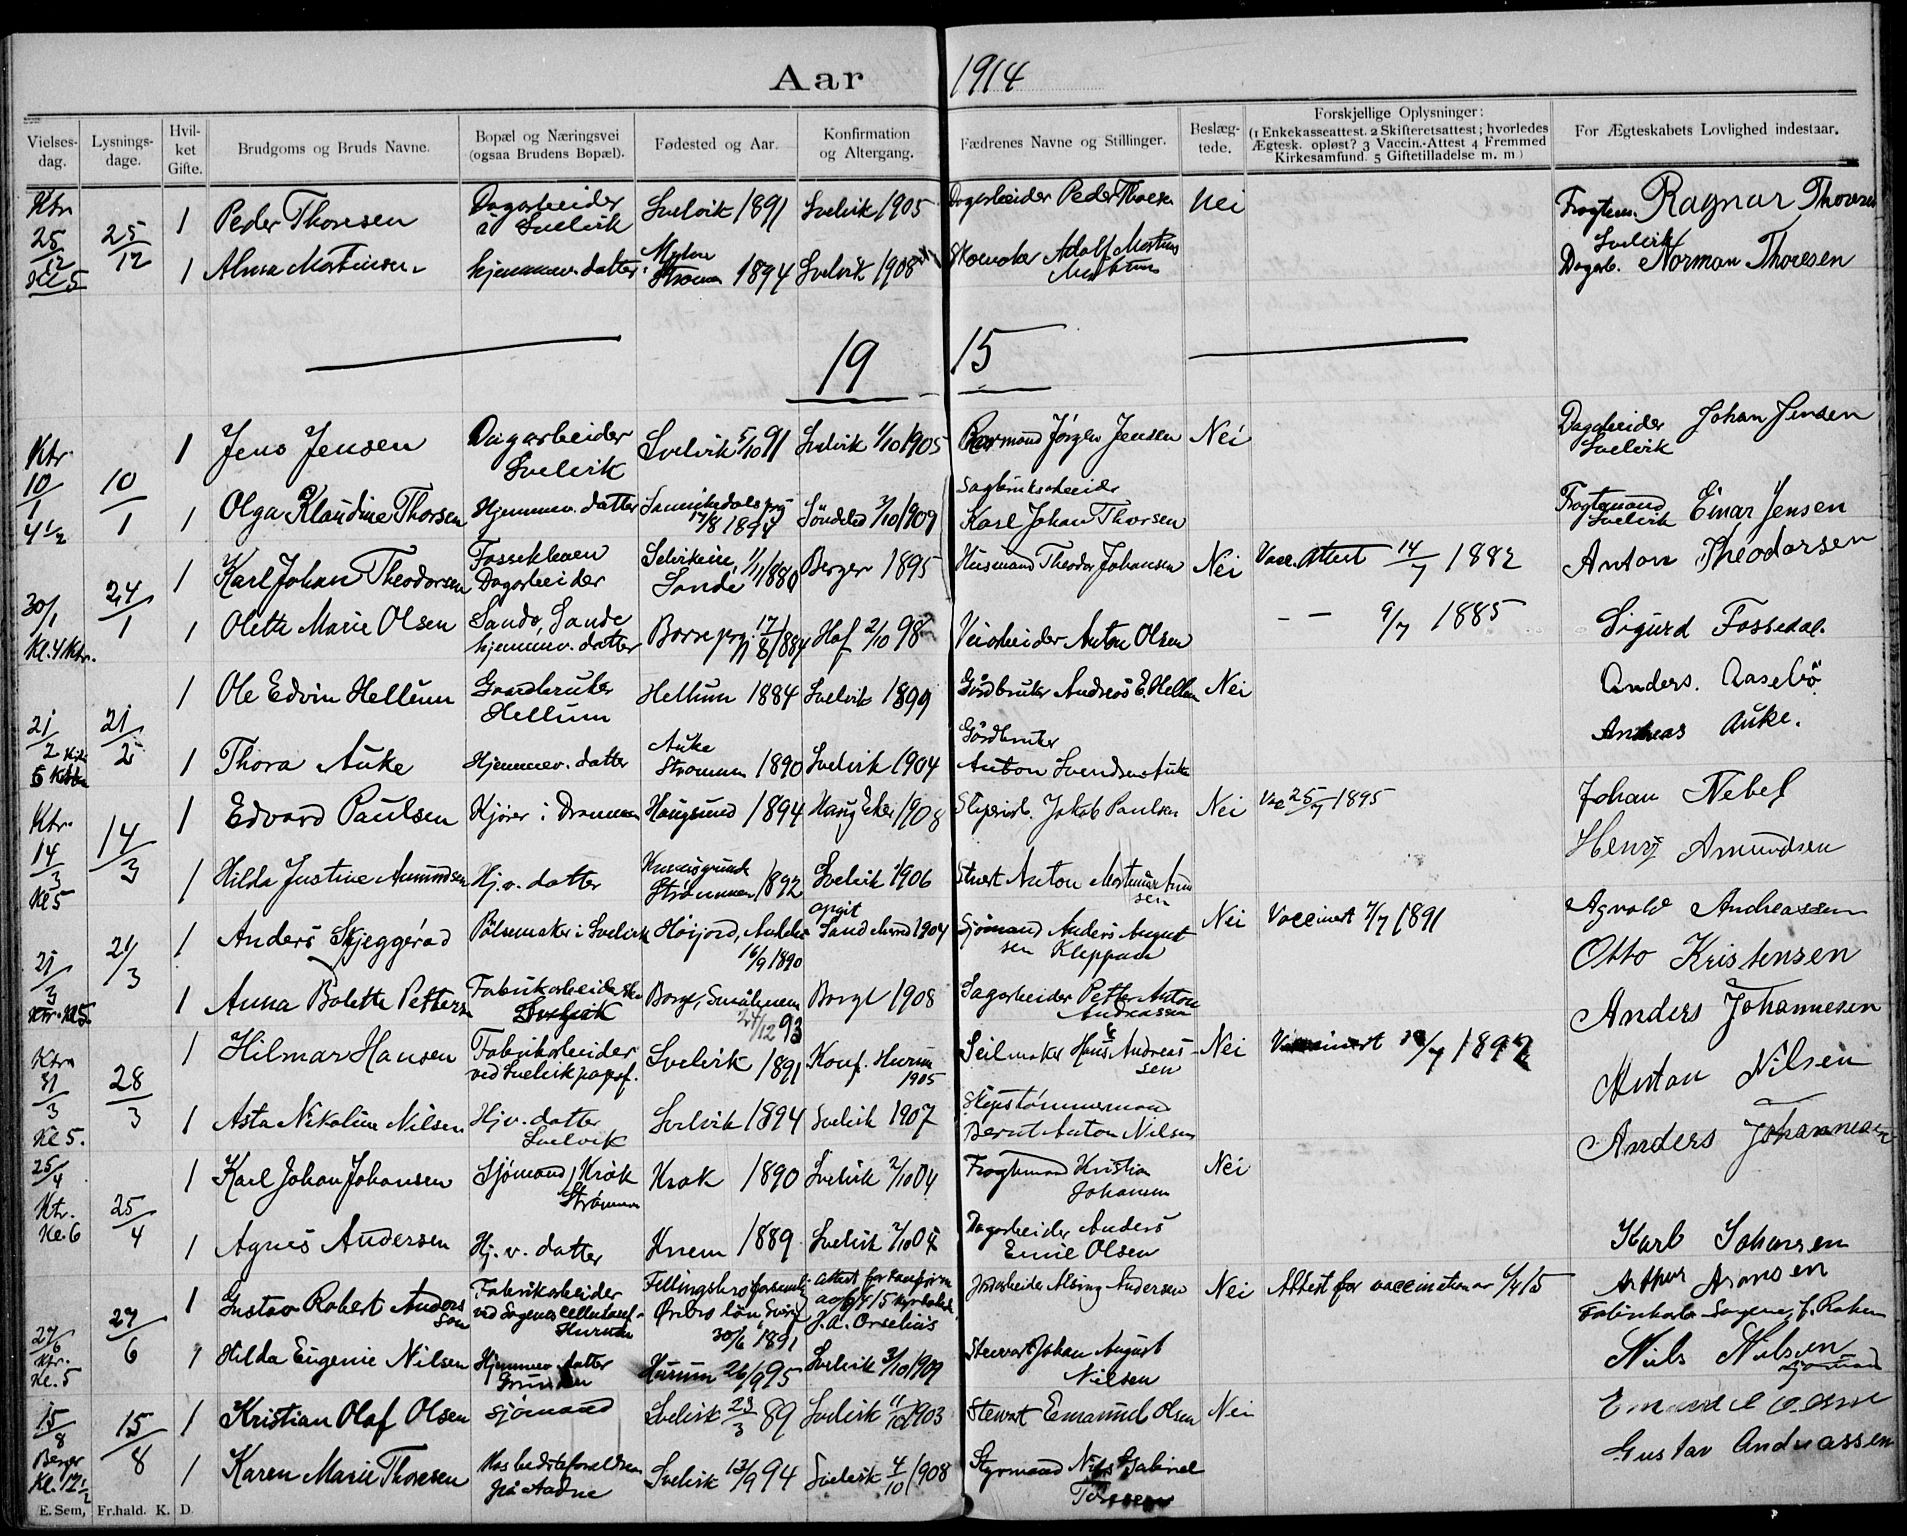 Aar 1914
Vielses-dag.
Lysnings-dage.
Hvil-ket Gifte.
Brudgoms og Bruds Navne.
Bopæl og Næringsvei (ogsaa Brudens Bopæl).
Fødested og Aar.
Konfirmation og Altergang.
Fædrenes Navne og Stillinger.
Beslæg-tede.
Forskjellige Oplysninger:
(1 Enkekasseattest. 2 Skifteretsattest; hvorledes
Ægtesk. opløst? 3 Vaccin.-Attest 4 Fremmed
Kirkesamfund. 5 Giftetilladelse m. m)
For Ægteskabets Lovlighed indestaar.
Ktr 25/12 Kl 5
25/12
1 Peder Thoresen Dagarbeider i Svelvik Svelvik 1891 Svelvik 1905 Dagarbeider Peder Thoresen Nei Ragnar Thoresen
Svelvik
1 Alma Mortensen hjemmev. datter Strømm 1894 Svelvik 1908 Skomaker Adolf Mortens Dagarb. Norman Thoresen
1915
Ktr. 10/1 4 1/2
10/1
1 Jens Jensen Dagarbeider Svelvik Svelvik 5/10 91 Svelvik 1/10 1905 Jørgen Jensen Nei Dagarbeider Svelvik Johan Jensen
1 Olga Klaudine Thorsen Hjemmev. datter Sannikedals prg 17/8 1894 Søndeled 3/10 1909 Sagbruksarbeider Karl Johan Thorsen Fragtemand Svelvik Einar Jensen
30/1 Kl. 4 Ktr.
24/1
1 Karl Johan Theodorsen Dagarbeider Sande 1/1 1880 Berger 1895 Husmand Theodor Johansen Nei Vacc. Attest 14/7 1882 Anton Theodorsen
1 Olette Marie Olsen Sando, Sande hjemmev. datter Borre prg. 17/8 1884 Hof 2/10 98 Veiarbeider Anton Olsen - - 9/7 1885 Sigurd Fossedal.
21/2
21/2
1 Ole Edvin Hellum Gaardbruker Hellum Hellum 1884 Svelvik 1899 Gårdbruker Andreas E. Hellum Nei Anders. Aasebö
1 Thora Auke Hjemmev. datter Auke Strømmen 1890 Svelvik 1904 Gårdbruker Anton Svendsen Auke Andreas Auke.
Ktr. 14/3 Kl 5
14/3
1 Edvard Paulsen Kjører i Drammen Haugsund 1894 Haug Eker 1908 Jakob Paulsen Nei Vac 25/7 1895 Johan Nebel
1 Hilda Justine Amundsen Hj. v. datter Strømmen 1892 Svelvik 1906 Stuert Anton Mortinus Amundsen Henry Amundsen
21/3 Ktr. Kl 5
21/3
1 Anders Skjeggerød Pølsemaker i Svelvik Høijord, Andebu 16/9 1890 opgit 1904 Sjømand Anders Augustsen Kleppan Nei Vaccinert 7/7 1891 Agvald Andreassen
1 Anna Bolette Petters Fabrikarbeiderske Svelvik Borge, Smålenene 24/12 93 Borge 1908 Sagarbeider Petter Anton Andreassen Otto Kristensen
Kl 5.
28/3
1 Hilmar Hansen Fabrikarbeider ved Svelvik papsf. Svelvik 1891 Konf. Hurum 1905 Seilmaker Hans Andreassen Nei Vaccinert 1892 Anders Johannesen
1 Asta Nikoline Nilsen Hj. v. datter Svelvik Svelvik 1894 Svelvik 1907 Skipstømmermand Bernt Anton Nilsen Anton Nilsen
Anders Johannesen
25/4 Ktr. Kl. 6
25/4
1 Karl Johan Johansen Sjømand Krok Strømmen Krok 1890 Svelvik 2/10 04 Fragtemand Kristian Johansen Nei
1 Agnes Andersen Hj. v. datter Knem 1889 Svelvik 2/10 04 Dagarbeider Anders Emil Olsen Karl Johansen
27/6 Ktr. Kl. 5
27/6
1 Gustav Robert Andersson Fabrikarbeider ved Sagenes cellulosef. Hurum Fellingsbro Örebro län, Sverige 30/6 1891 Attest for konfirm J. A. Orselius Jordarbeider Alsing Andersen Nei Attest for vaccination av Arthur Aronsen
1 Hilda Eugenie Nilsen Hjemmev. datter Hurum 26/9 95 Svelvik 3/10 1909 Stewart Johan August Nilsen Niels Nilsen Sjømand
15/8 Berger Kl. 12 1/2
15/8
1 Kristian Olaf Olsen Sjømand Svelvik 23/3 89 Svelvik 11/10 1903 Stewart Emanuel Olsen Nei
1 Karen Marie Thoresen Hos bedsteforældrene på Aadne Svelvik 13/9 94 Svelvik 4/10 1908 Styrmand Nils Gabriel Gustav Andreassen
E. Sem, Fr.hald. K. D.